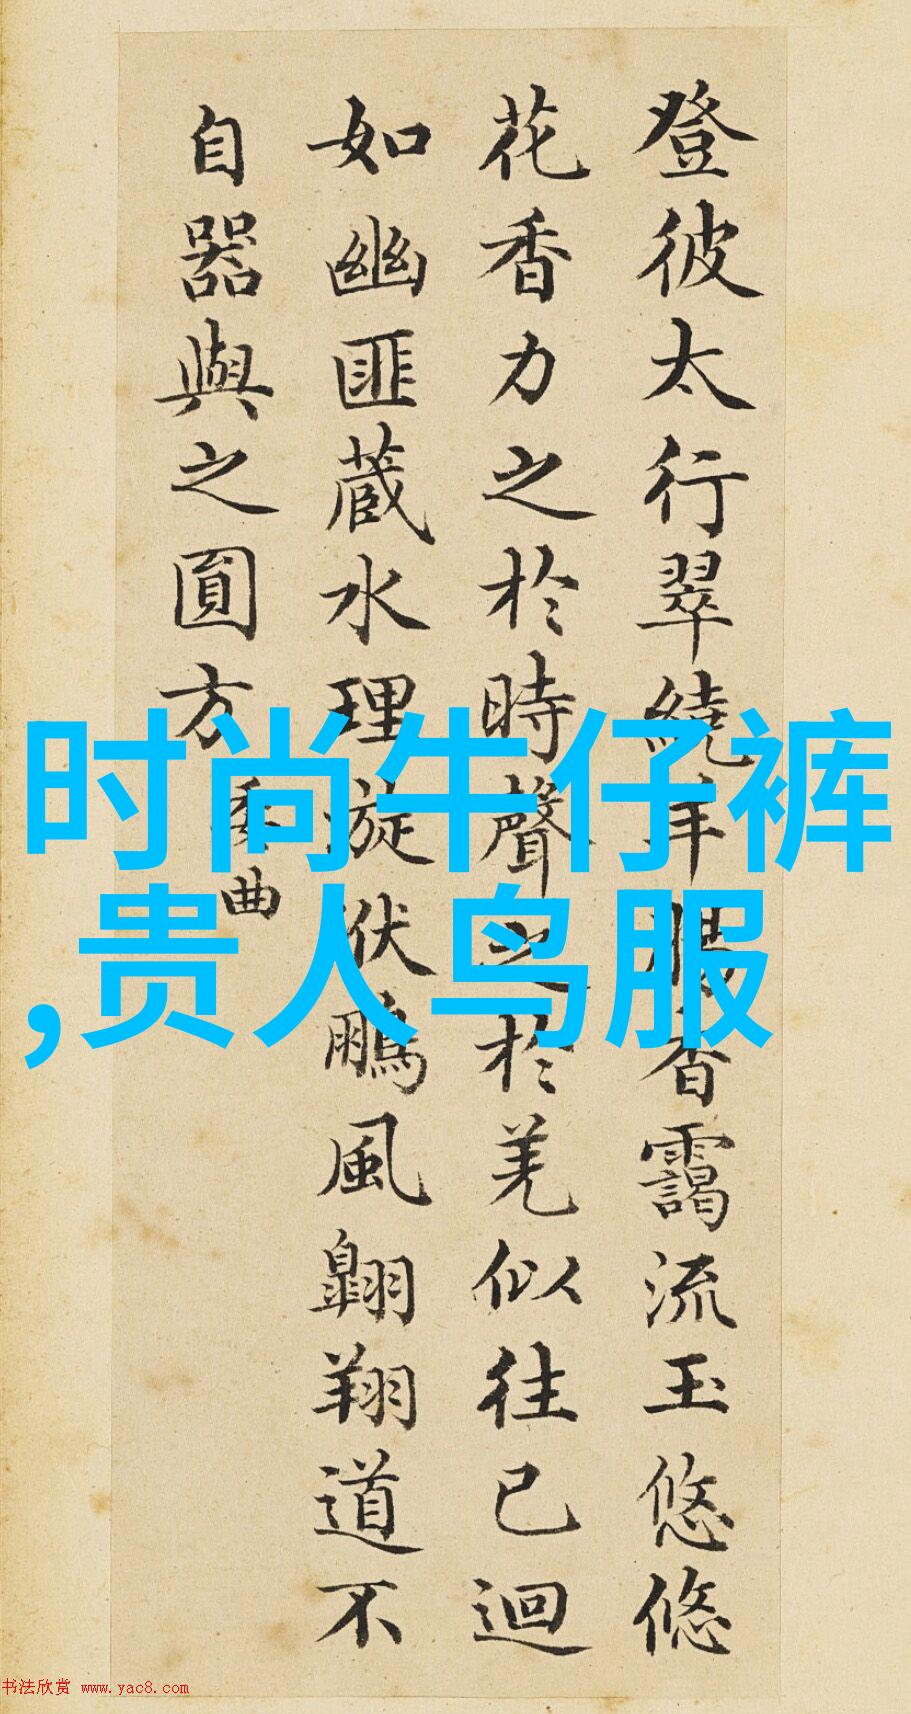 登彼太行翠繞羊腸杳靄流玉悠悠
花香力之於時聲之於羌似往已迴
如幽匪蔵水理漩洑鵬風翺翔道不
自器與之圓方
委曲
时尚牛仔裤
,贵人鸟服
书法欣赏 www.yac8.com